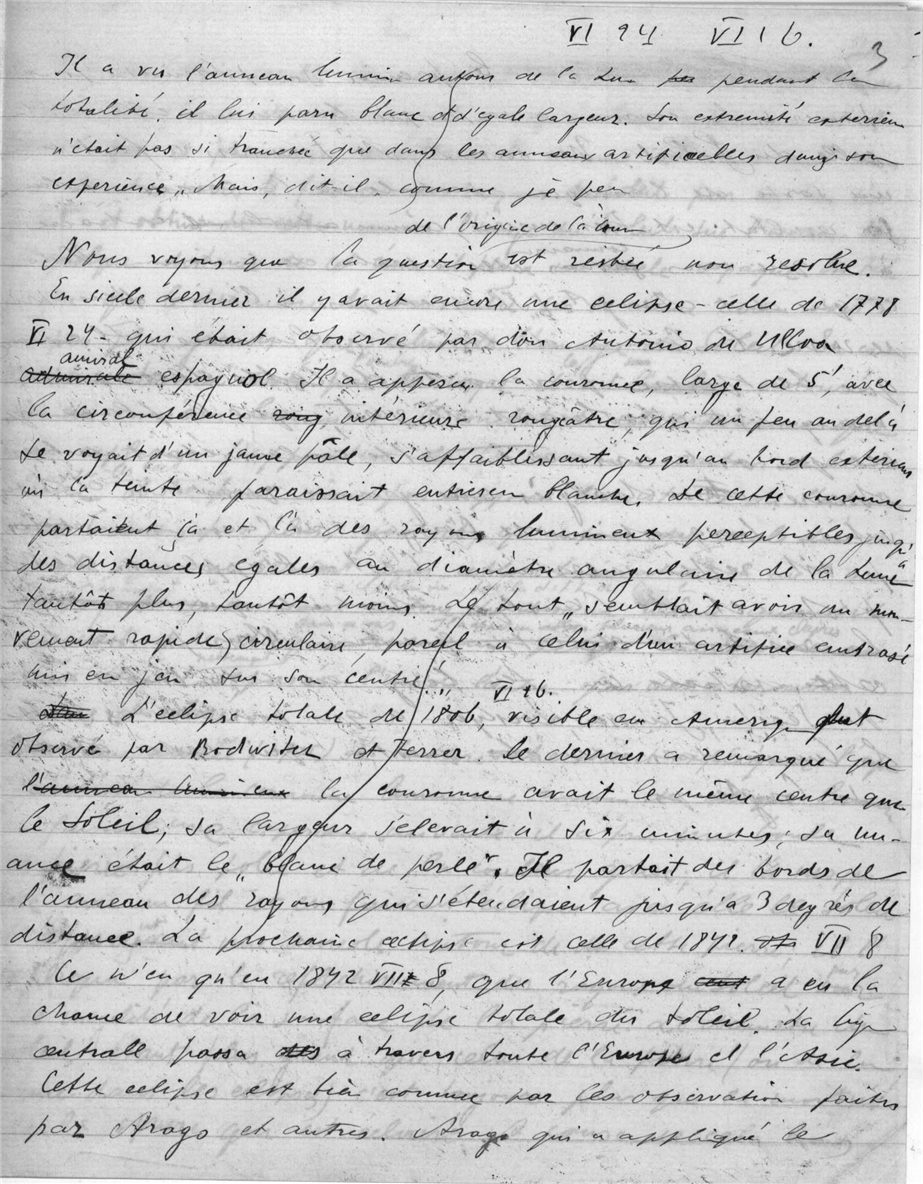 VI 24 VI 16.
3
Il a vu l'anneau lumin autour de la Lun pendant la
totalité, il lui paru blanc et d'egale largeur. Son extremité exterieu
n'était pas si trancée que dans les anneaux artificielles dans son
experience „ Mais, dit il, comme je peu
de l'origine de la cour
Nous voyons que la question est restée non resolue.
En siecle dernier il y avait encore une eclipse – celle de 1778
VI 24 – qui était observé par don Antonio de Ulloa
amiral
admirale espagnol. Il a apperçu la couronne, large de 5', avec
la circonférence roug intérieure rougeâtre, qui un peu au delà
se voyait d'un jaune pâle, s'affaiblissant jusqu'au bord exterieur
où la teinte paraissait entierem blanche. De cette couronne
partaient çà et là des rayons lumineux perceptibles jusqu'à
des distances egales au diamètre angulaire de la Lune
tantôt plus, tantôt moins. Le tout „ semblait avoir un mou-
vement rapide, circulaire, pareil à celui d'un artifice embrasé
mis en jeu sur son centre."
VI 16.
L'eclipse totale de 1806, visible en Ameriq fut
observé par Bodwitch et Ferrer. Le dernier a remarqué que
l'anneau lumineux la couronne avait le même centre que
le Soleil; sa largeur s'elevait à six minutes; sa nu-
ance était le „ blanc de perle". Il partait des bords de
l'anneau des rayons qui s'étendaient jusqu'a 3 degrés de
distance. La prochaine eclipse est celle de 1842. VII 8
Ce n'en qu'en 1842 VII 8, que l'Europe eut a eu la
chance de voir une eclipse totale du Soleil. La lign
centrall passa des à travers toute l'Europe et l'Asie.
Cette eclipse est très connue par les observation faites
par Arago et autres. Arago qui a appliqué le